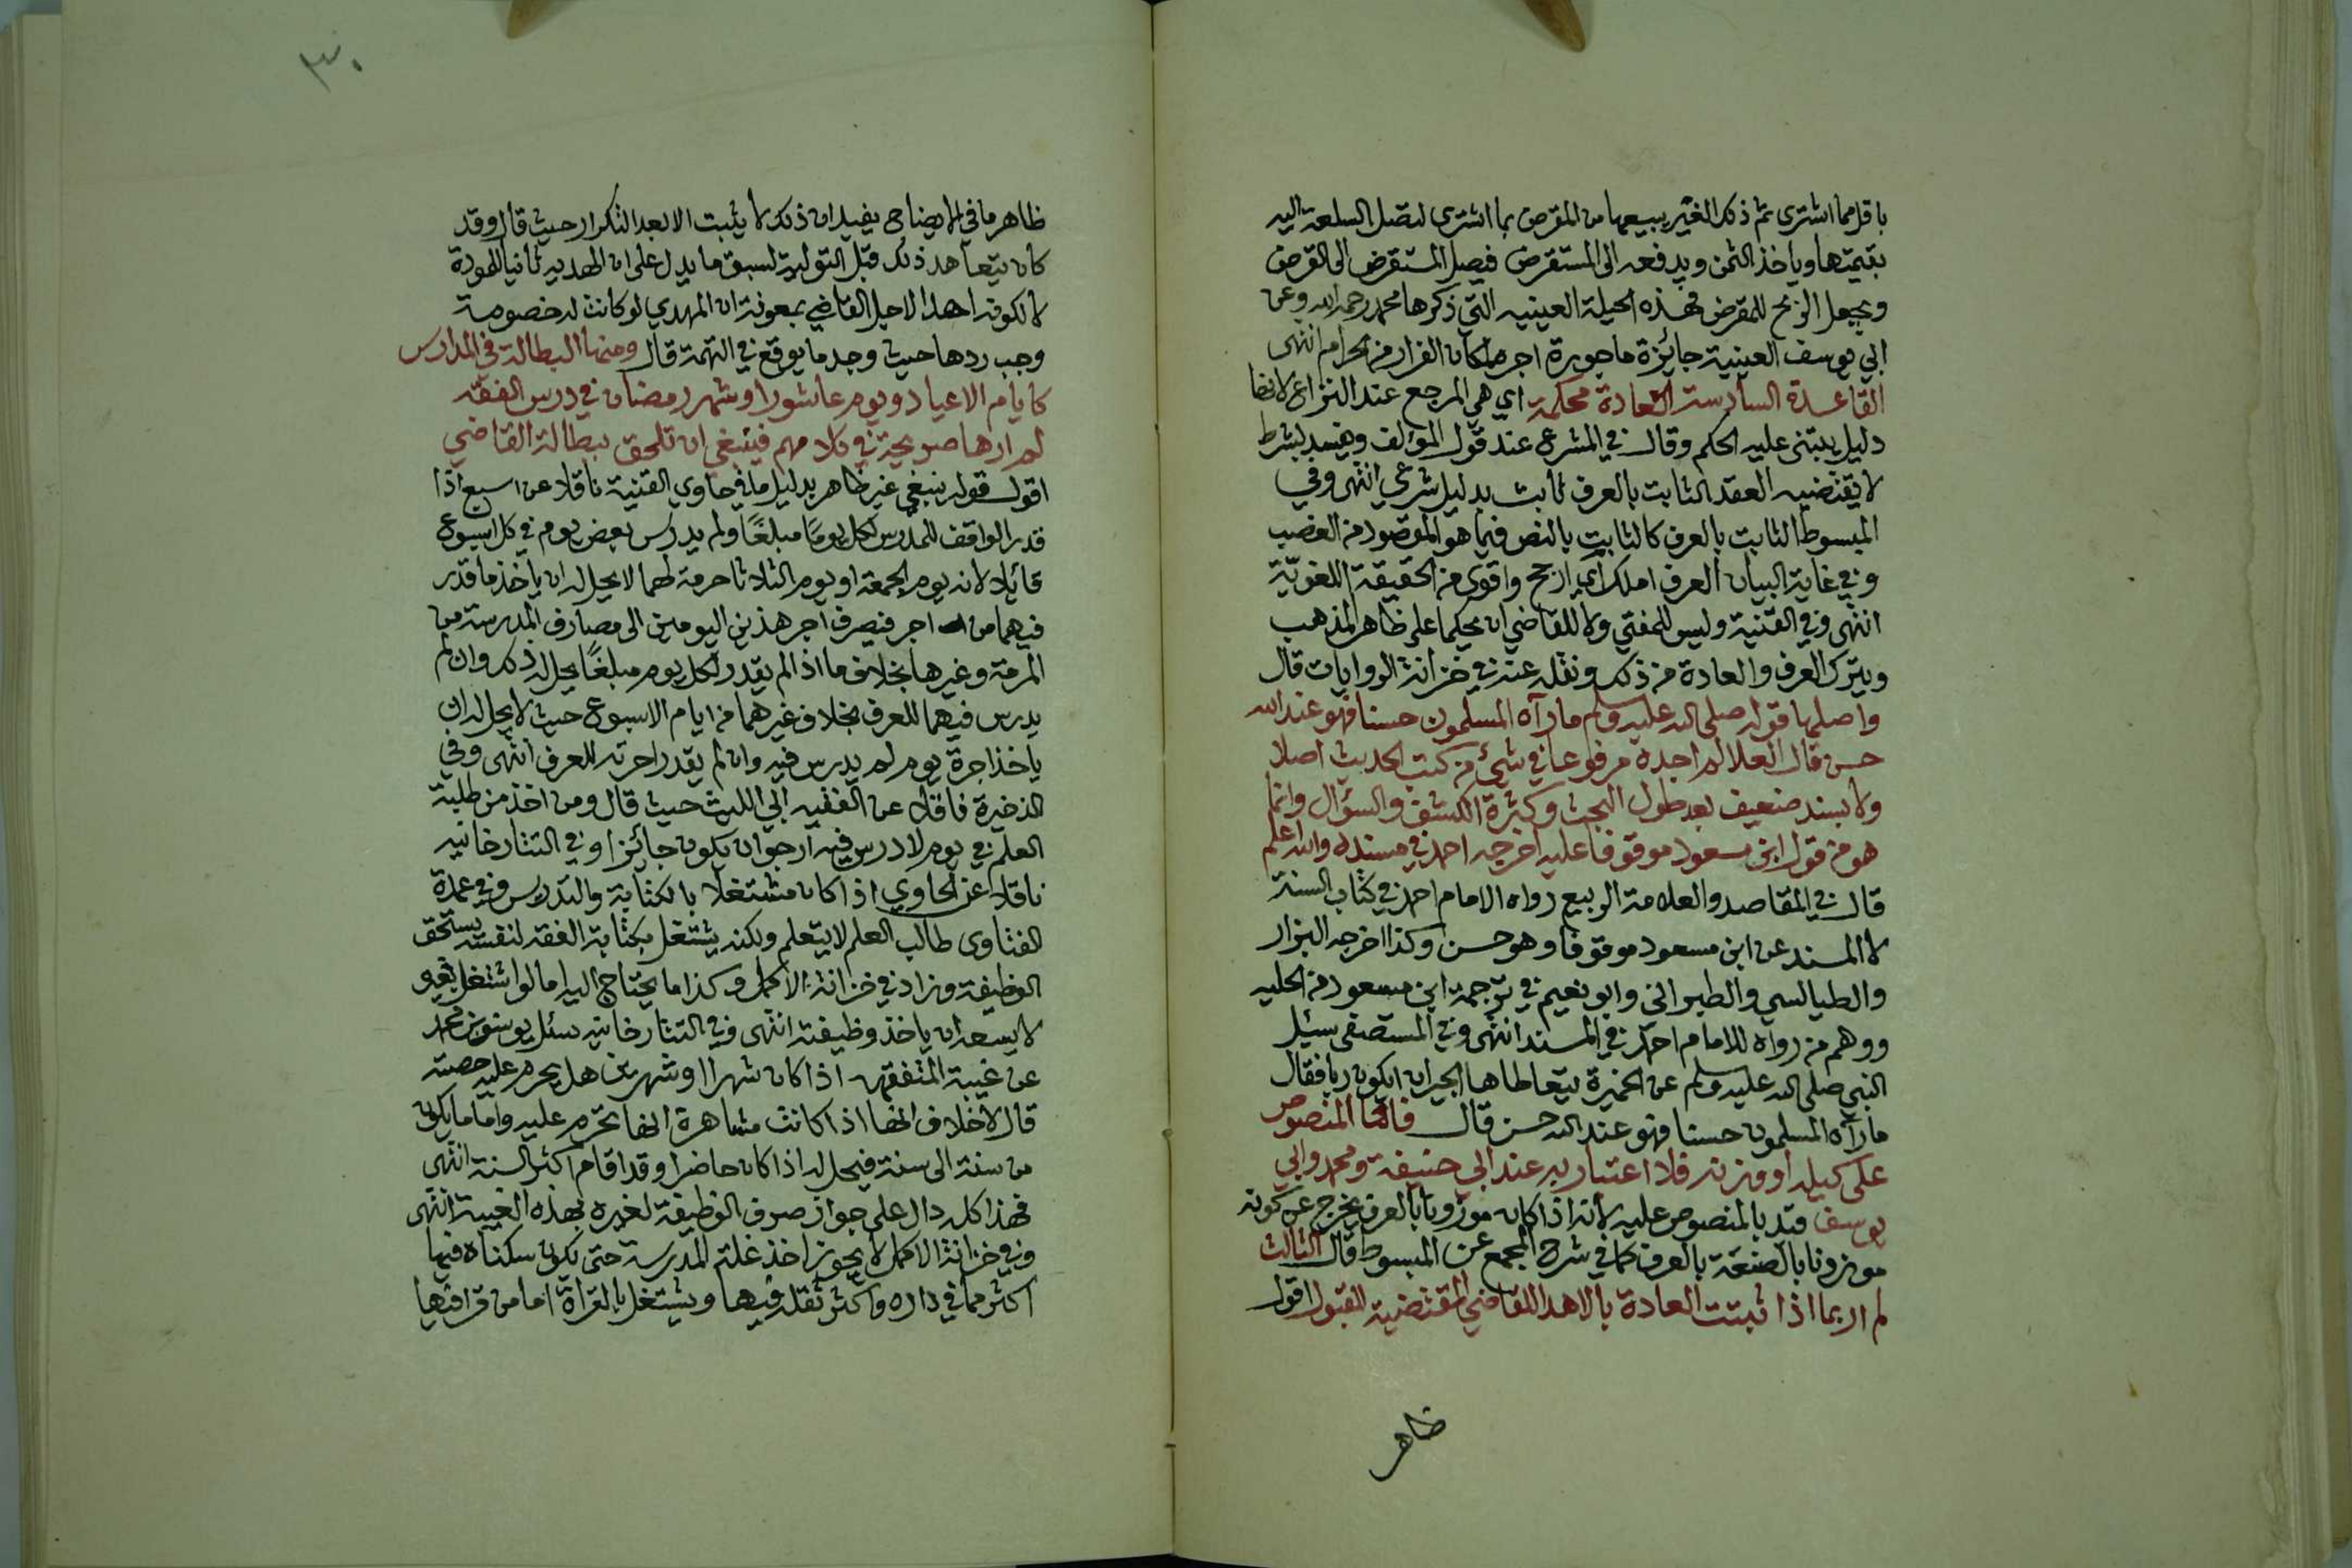 باقل مما اشترى ثم ذلك الغير يبيعها من المقرض بما اشترى لتصل السلعة اليه
بقيمتها وياخذ الثمن ويدفعه الى المستقرض فيصل المستقرض الى القرض
ويحصل الربح للمقرض فهذه الحيلة العينيه التي ذكرها محمد رحمه الله وعن
ابي يوسف العينية جائزة ماجورة اجرها كان الفرار من الحرام انتهى
القاعدة السادسة العادة محكمة اي هي المرجع عند النزاع لانها
دليل يبتنى عليه الحكم وقال في المشرع عند قول المؤلف ويفسد بشرط
لا يقتضيه العقد الثابت بالعرف ثابت بدليل شرعي انتهى وفي
المبسوط الثابت بالعرف كالثابت بالنص فيما هو المقصود من الغصب
وفي غاية البيان العرف املك اي ارجح واقوى من الحقيقة اللغويّة
انتهى وفي القنية وليس للمفتي ولا للقاضي ان يحكما على ظاهر المذهب
ويترك العرف والعادة من ذلك ونقله عنه في خزانة الروايات قال
واصلها قوله صلى الله عليه وسلم مارآه المسلمون حسنا فهو عند الله
حسن قال العلا لم اجده مرفوعا في شيء من كتب الحديث اصلا
ولا بسند ضعيف بعد طول البحث وكثرة الكشف والسؤال وانما
هو من قول ابن مسعود موقوفا عليه اخرجه احمد في مسنده والله اعلم
قال في المقاصد والعلامة الربيع رواه الامام احمد في كتاب السنة
لا المسند عن ابن مسعود موقوفا وهو حسن وكذا اخرجه البزار
والطيالسي والطبراني وابو نعيم في ترجمة ابن مسعود من الحليه
ووهم من رواه للامام احمد في المسند انتهى وفي المستصفى سئل
النبي صلى الله عليه وسلم عن الخميرة يتعاطاها الجيران ايكون ربا فقال
ما رآه المسلمون حسنا فهو عند الله حسن قال فاما المنصوص
على كيله او وزنه فلا اعتبار به عند ابي حنيفة ومحمد وابي
يوسف قيد بالمنصوص عليه لانه اذا كان موزونا بالعرف يخرج عن كونه
موزونا بالصنعة بالعرف كما في شرح المجمع عن المبسوط قال الثالث
لم ار بما اذا ثبتت العادة بالاهدا للقاضي المقتضية للقبول اقول
ظاهر
٣٠
ظاهر ما في الايضاح يفيد ان ذلك لا يثبت الا بعد التكرار حيث قال وقد
كان يتعاهد ذلك قبل التولية لسبق ما يدل على ان الهديه ثانيا للمودة
لا لكونه اهدا لاجل القاضي بمعونة ان المهدي لو كانت له خصومة
وجب ردها حيث وجد ما يوقع في التهمة قال ومنها البطالة في المدارس
كايام الاعياد ويوم عاشورا وشهر رمضان في درس الفقه
لم ارها صريحة في كلامهم فينبغي ان تلحق ببطالة القاضي
اقول قوله ينبغي غير ظاهر بدليل ما في حاوي القنية ناقلا عن اسبع اذا
قدر الواقف للمدرس لكل يومًا مبلغًا ولم يدرس بعض يوم في كل اسبوع
قائلا لانه يوم الجمعة او يوم الثلاثا حرمة لهما لا يحل له ان ياخذ ما قدر
فيهما من اجر فيصرف اجر هذين اليومين الى مصارف المدرسة من
المرمة وغيرها بخلاف ما اذا لم يقدر لكل يوم مبلغًا يحل له ذلك وان لم
يدرس فيهما للعرف بخلاف غيرهما من ايام الاسبوع حيث لا يحل له ان
ياخذ اجرة يوم لم يدرس فيه وان لم يقدر اجرته للعرف انتهى وفي
الذخيرة ناقلا عن الفقيه ابي الليث حيث قال ومن اخذ من طلبة
العلم في يوم لا درس فيه ارجو ان يكون جائزا وفي التتارخانيه
ناقلا عن الحاوي اذا كان مشتغلا بالكتابة والتدريس وفي عمدة
الفتاوى طالب العلم لا يتعلم ولكنه يشتغل بكتابة الفقه لنفسه يستحق
الوظيفة وزاد في خزانة الاكمل وكذا ما يحتاج اليه اما لو اشتغل بغيره
لا يسعه ان ياخذ وظيفته انتهى وفي التتارخانيه سئل يوسف بن محمد
عن غيبة المتفقهه اذا كان شهرا او شهرين هل يحرم عليه حصته
قال لا خلاف انها اذا كانت مشاهرة انها تحرم عليه واما ما يكون
من سنة الى سنة فيحل له اذا كان حاضرا وقد اقام اكثر السنة انتهى
فهذا كله دال على جواز صرف الوظيفة لغيره بهذه الغيبة انتهى
وفي خزانة الاكمل لا يجوز اخذ غلة المدرسة حتى يكون سكناه فيها
اكثر مما في داره واكثر ثقله فيها ويشتغل بالقراة اما من قرا فيها